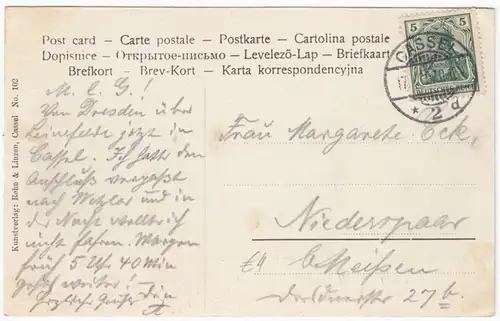 Post card - Carte postale - Postkarte - Cartolina postale
Dopisnice - Открытое-письмо - Levelező-Lap - Briefkaart
Brefkort - Brev-Kort - Karta korrespondencyjna
5 5
DEUTSCHES REICH
CASSEL
* 2 d
Kunstverlag: Rohn & Linzen, Cassel No. 102
M. l. G!
Von Dresden über
Leinefelde jetzt in
Cassel. Ich hatte den
Anschluß verpaßt
nach Wetzlar und in
der Nacht
nicht fahren. Morgen
früh 5 Uhr 40 Min
geht weiter!
Herzliche Grüße Dein
Frau Margarete Eck,
Niederspaar
b/Meißen
Dresdnerstr 27b.